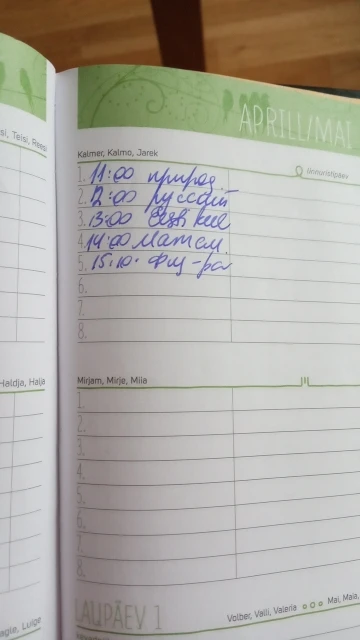 si, Teisi, Reesi
APRILL/MAI
Kalmer, Kalmo, Jarek
Jüriristipäev
1. 11:00 природ.
2. 12:00 русский
3. 13:00 Eesti keel
4. 14:00 Матем.
5. 15:10. Физ-ра
6.
7.
8.
Haldja, Halja
Mirjam, Mirje, Miia
1.
2.
3.
4.
5.
6.
7.
8.
LAUPÄEV 1
Volber, Valli, Valeria
Mai, Maia,